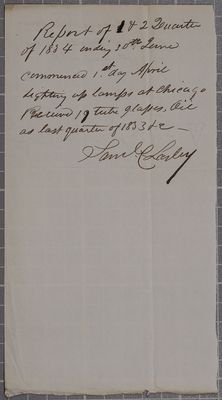 Report of 1 & 2 Quarter
of 1834 ending 30th June
commenced 1st day April
lighting up lamps at Chicago
Received 19 tube glasses, Oil
as last quarter of 1833 &c —
Saml C Lasby